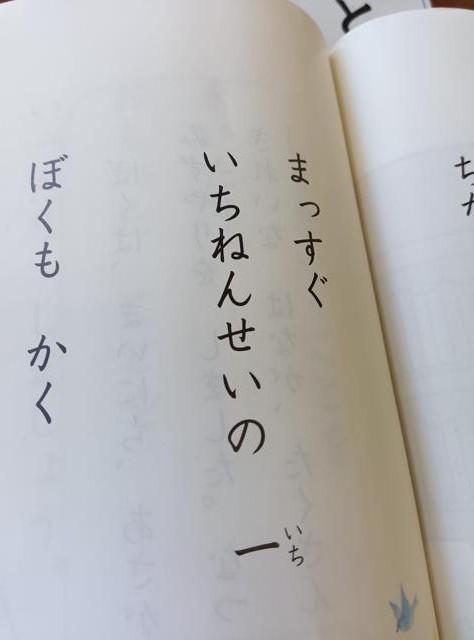 まっすぐ
いちねんせいの 一
いち
ぼくも かく